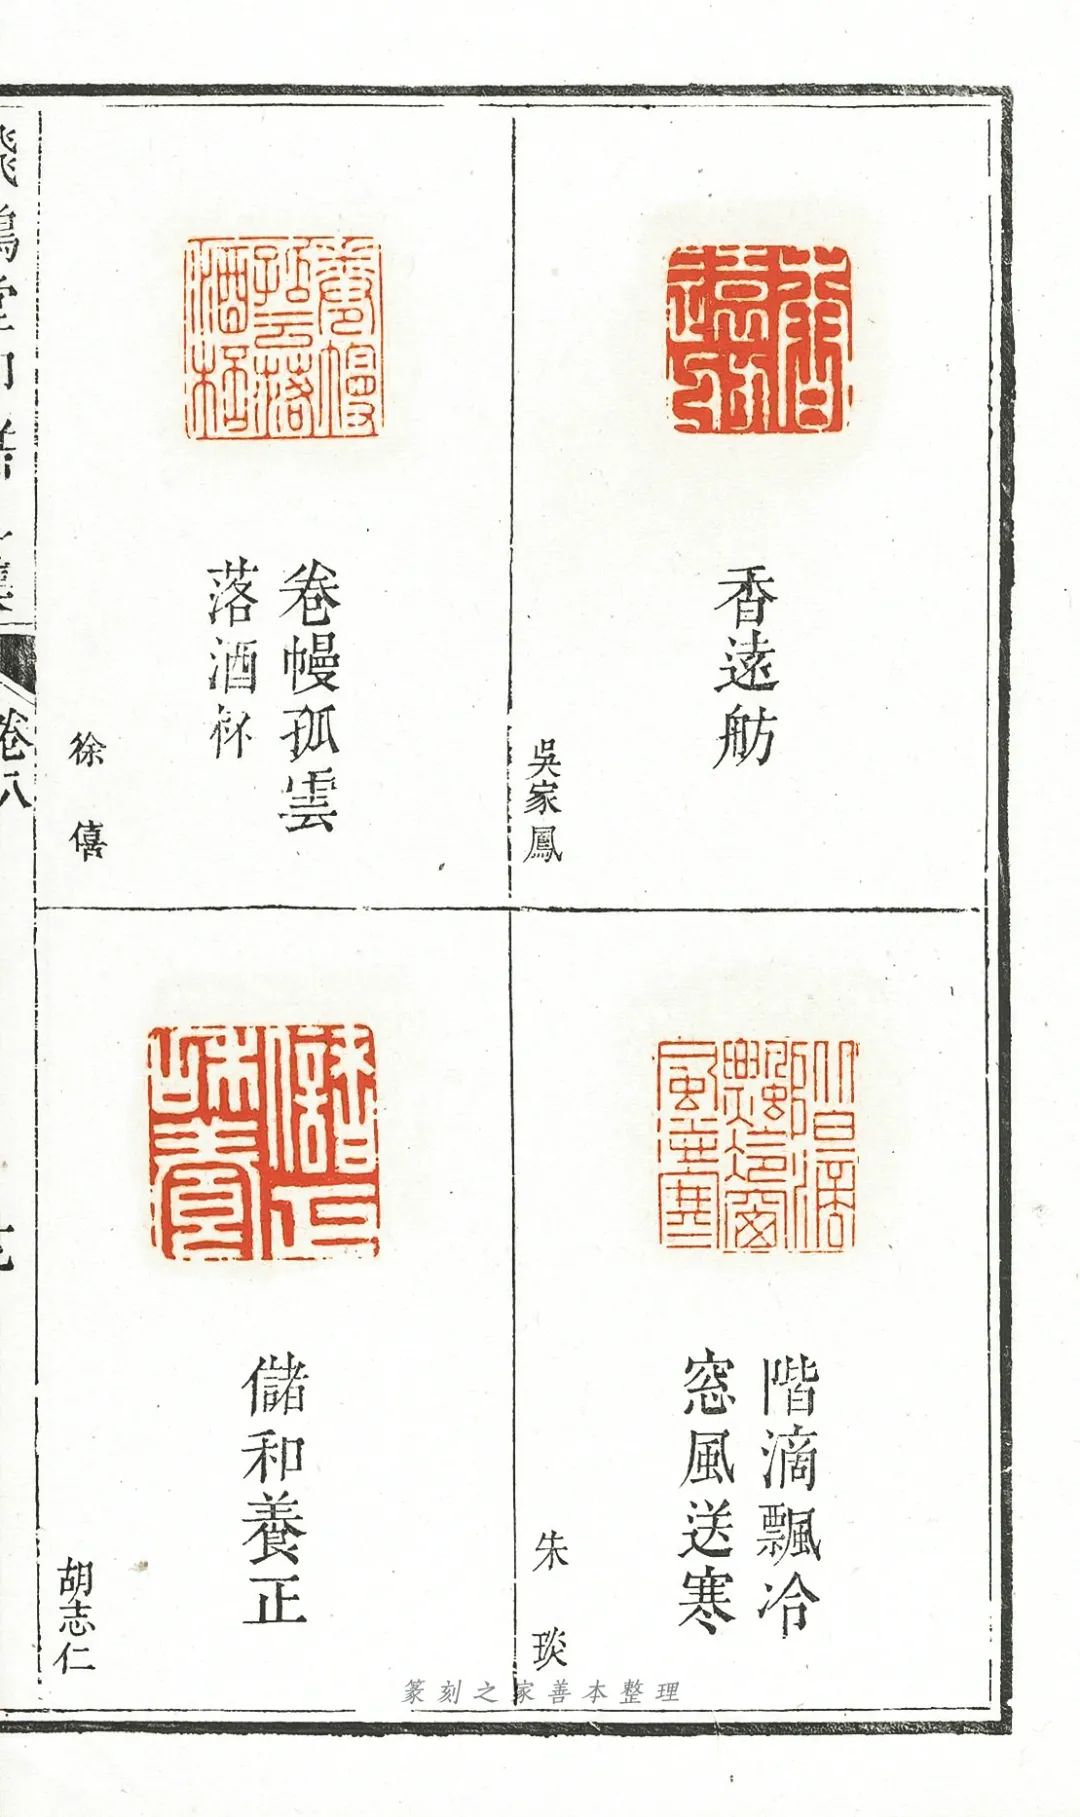 香遠舫
吳家鳳
卷幔孤雲
落酒杯
徐僖
階滴飄冷
窓風送寒
朱琰
儲和養正
胡志仁
飛鴻堂印譜
卷八
篆刻之家善本整理